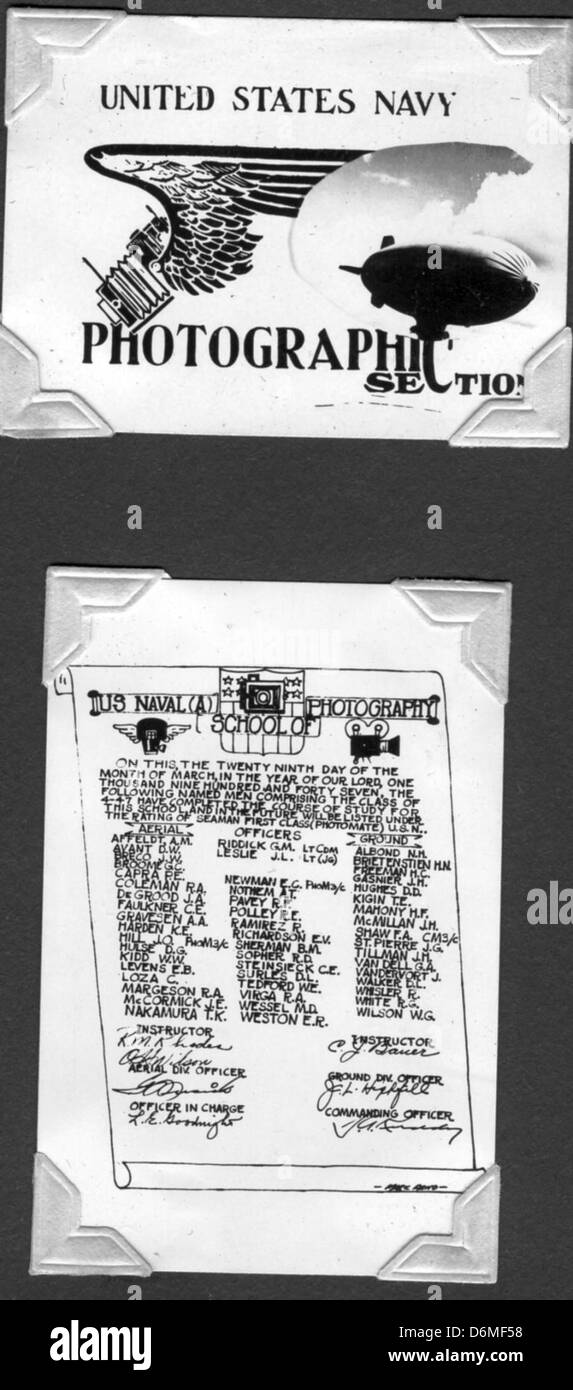 UNITED STATES NAVY
PHOTOGRAPHIC
SECTION
US NAVAL (A) SCHOOL OF PHOTOGRAPHY
ON THIS, THE TWENTY NINTH DAY OF THE
MONTH OF MARCH, IN THE YEAR OF OUR LORD, ONE
THOUSAND NINE HUNDRED AND FORTY SEVEN, THE
FOLLOWING NAMED MEN COMPRISING THE CLASS OF
4-47 HAVE COMPLETED THE COURSE OF STUDY FOR
THIS SCHOOL, AND IN THE FUTURE WILL BE LISTED UNDER
THE RATING OF SEAMAN FIRST CLASS (PHOTOMATE) U.S.N..
AERIAL
AFFELDT A.M.
AVANT D.W.
BRECO J.W.
BROOME G.F.
CAPRA P.E.
COLEMAN R.A.
DE GROOD J.A.
FAULKNER C.E.
GRAVESEN A.A.
HARDEN K.E.
HILL J.O. PHOM3/C
HULSE D.G.
KIDD W.W.
LEVENS E.B.
LOZA C.
MARGESON R.A.
MCCORMICK J.E.
NAKAMURA T.K.
OFFICERS
RIDDICK G.M. LT CDM
LESLIE J.L. LT (JG)
NEWMAN E.C. PHOM3/C
NOTHEM A.T.
PAVEY R.F.
POLLEY E.E.
RAMIREZ R.
RICHARDSON E.V.
SHERMAN B.M.
SOPHER R.D.
STEINSIECK C.E.
SURLES D.L.
TEDFORD W.E.
VIRGA R.A.
WESSEL M.D.
WESTON E.R.
GROUND
ALBOND N.H.
BRIETENSTIEN H.N.
FREEMAN H.C.
GASNIER J.H.
HUGHES D.D.
KIGIN T.E.
MAHONY H.F.
MCMILLAN J.H.
SHAW F.A. CM3/C
ST. PIERRE J.G.
TILLMAN J.H.
VAN DELL G.A.
VANDERVORT J.
WALKER D.L.
WHISLER R.
WHITE R.G.
WILSON W.G.
INSTRUCTOR
K.M. Rhodes
Wilson
AERIAL DIV. OFFICER
OFFICER IN CHARGE
L.E. Goodnight
INSTRUCTOR
C.J. Bauer
GROUND DIV. OFFICER
J.L. Highfill
COMMANDING OFFICER
alamy
Image ID: D6MF58
www.alamy.com